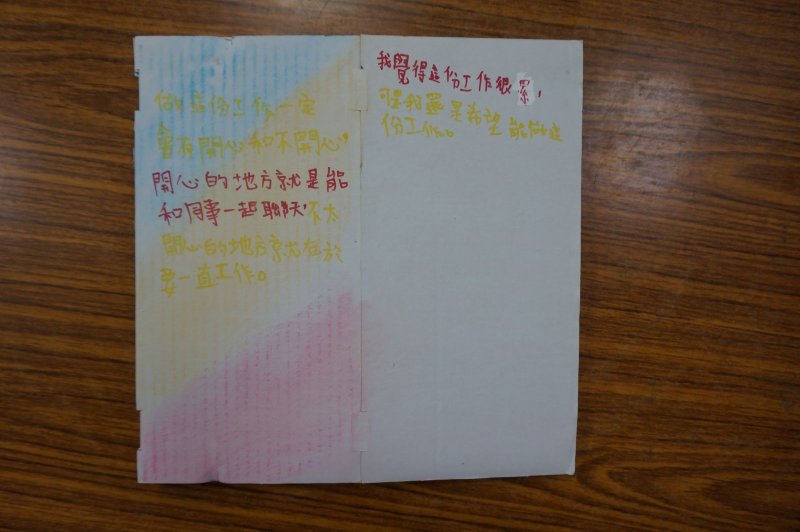 做這份工作一定
會有開心和不開心，
開心的地方就是能
和同事一起聊天，不太
開心的地方就在於
要一直工作。
我覺得這份工作很累，
但我還是希望能做這
份工作。